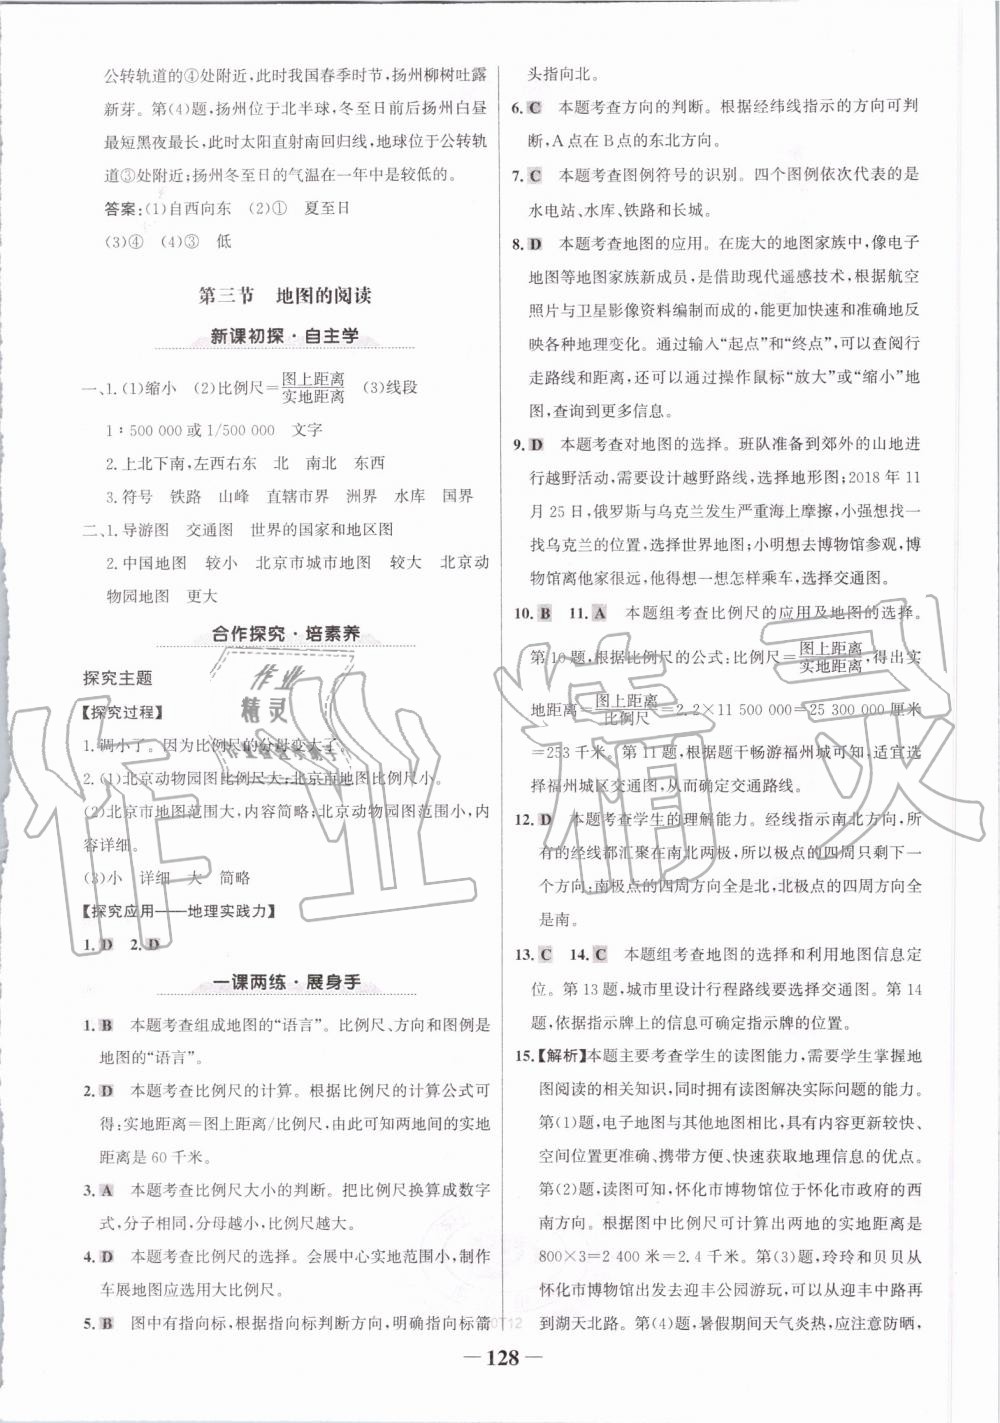 公转轨道的④处附近,此时我国春季时节,扬州柳树吐露
新芽。第(4)题,扬州位于北半球,冬至日前后扬州白昼
最短黑夜最长;此时太阳直射南回归线,地球位于公转轨
道③处附近;扬州冬至日的气温在一年中是较低的。
答案:(1)自西向东 (2)① 夏至日
(3)④ (4)③ 低
第三节 地图的阅读
新课初探·自主学
一、1.(1)缩小 (2)比例尺=图上距离/实地距离 (3)线段
1∶500 000或1/500 000 文字
2.上北下南,左西右东 北 南北 东西
3.符号 铁路 山峰 直辖市界 洲界 水库 国界
二、1.导游图 交通图 世界的国家和地区图
2.中国地图 较小 北京市城市地图 较大 北京动
物园地图 更大
合作探究·培素养
探究主题
【探究过程】
1.调小了。因为比例尺的分母变大了。
2.(1)北京动物园图比例尺大;北京市地图比例尺小。
(2)北京市地图范围大,内容简略;北京动物园图范围小,内
容详细。
(3)小 详细 大 简略
【探究应用——地理实践力】
1.D 2.D
一课两练·展身手
1.B 本题考查组成地图的“语言”。比例尺、方向和图例是
地图的“语言”。
2.D 本题考查比例尺的计算。根据比例尺的计算公式可
得:实地距离=图上距离/比例尺,由此可知两地间的实地
距离是60千米。
3.A 本题考查比例尺大小的判断。把比例尺换算成数字
式,分子相同,分母越小,比例尺越大。
4.D 本题考查比例尺的选择。会展中心实地范围小,制作
车展地图应选用大比例尺。
5.B 图中有指向标,根据指向标判断方向,明确指向标箭
头指向北。
6.C 本题考查方向的判断。根据经纬线指示的方向可判
断,A点在B点的东北方向。
7.C 本题考查图例符号的识别。四个图例依次代表的是
水电站、水库、铁路和长城。
8.D 本题考查地图的应用。在庞大的地图家族中,像电子
地图等地图家族新成员,是借助现代遥感技术,根据航空
照片与卫星影像资料编制而成的,能更加快速和准确地反
映各种地理变化。通过输入“起点”和“终点”,可以查阅行
走路线和距离,还可以通过操作鼠标“放大”或“缩小”地
图,查询到更多信息。
9.D 本题考查对地图的选择。班队准备到郊外的山地进
行越野活动,需要设计越野路线,选择地形图;2018年11
月25日,俄罗斯与乌克兰发生严重海上摩擦,小强想找一
找乌克兰的位置,选择世界地图;小明想去博物馆参观,博
物馆离他家很远,他得想一想怎样乘车,选择交通图。
10.B 11.A 本题组考查比例尺的应用及地图的选择。
第10题,根据比例尺的公式:比例尺=图上距离/实地距离,得出实
地距离=图上距离/比例尺=2.2×11 500 000=25 300 000厘米
=253千米。第11题,根据题干畅游福州城可知,适宜选
择福州城区交通图,从而确定交通路线。
12.D 本题考查学生的理解能力。经线指示南北方向,所
有的经线都汇聚在南北两极,所以极点的四周只剩下一
个方向;南极点的四周方向全是北,北极点的四周方向全
是南。
13.C 14.C 本题组考查地图的选择和利用地图信息定
位。第13题,城市里设计行程路线要选择交通图。第14
题,依据指示牌上的信息可确定指示牌的位置。
15.【解析】本题主要考查学生的读图能力,需要学生掌握地
图阅读的相关知识,同时拥有读图解决实际问题的能力。
第(1)题,电子地图与其他地图相比,具有内容更新较快、
空间位置更准确、携带方便、快速获取地理信息的优点。
第(2)题,读图可知,怀化市博物馆位于怀化市政府的西
南方向。根据图中比例尺可计算出两地的实地距离是
800×3=2 400米=2.4千米。第(3)题,玲玲和贝贝从
怀化市博物馆出发去迎丰公园游玩,可以从迎丰中路再
到湖天北路。第(4)题,暑假期间天气炎热,应注意防晒,
— 128 —
作业精灵
作业
精灵